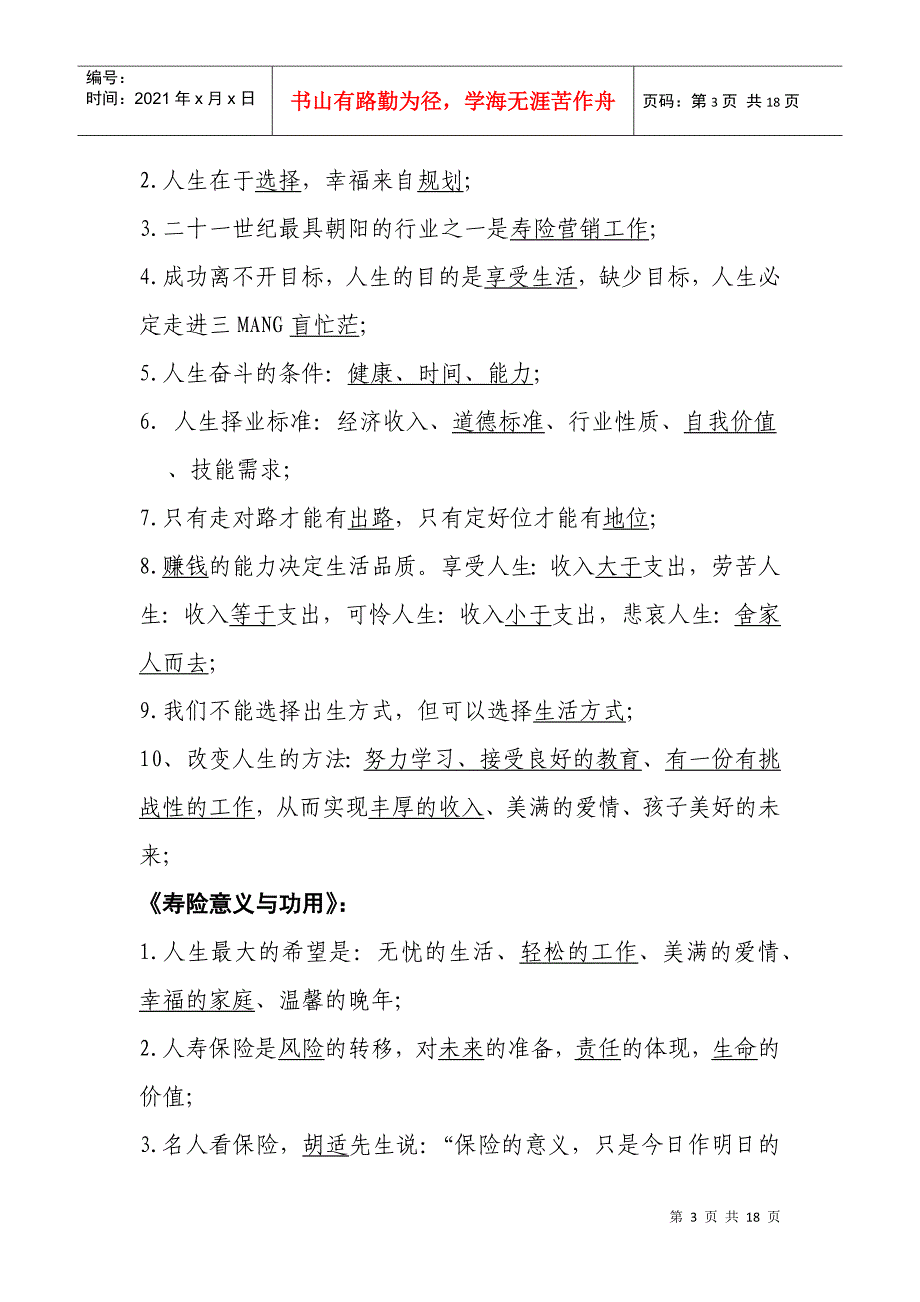 编号：
时间：2021年x月x日
书山有路勤为径，学海无涯苦作舟
页码：第3页 共18页
2.人生在于选择，幸福来自规划；
3.二十一世纪最具朝阳的行业之一是寿险营销工作；
4.成功离不开目标，人生的目的是享受生活，缺少目标，人生必
定走进三MANG盲忙茫；
5.人生奋斗的条件：健康、时间、能力；
6. 人生择业标准：经济收入、道德标准、行业性质、自我价值
、技能需求；
7.只有走对路才能有出路，只有定好位才能有地位；
8.赚钱的能力决定生活品质。享受人生：收入大于支出，劳苦人
生：收入等于支出，可怜人生：收入小于支出，悲哀人生：舍家
人而去；
9.我们不能选择出生方式，但可以选择生活方式；
10、改变人生的方法：努力学习、接受良好的教育、有一份有挑
战性的工作，从而实现丰厚的收入、美满的爱情、孩子美好的未
来；
《寿险意义与功用》：
1.人生最大的希望是：无忧的生活、轻松的工作、美满的爱情、
幸福的家庭、温馨的晚年；
2.人寿保险是风险的转移，对未来的准备，责任的体现，生命的
价值；
3.名人看保险，胡适先生说：“保险的意义，只是今日作明日的
第 3 页 共 18 页